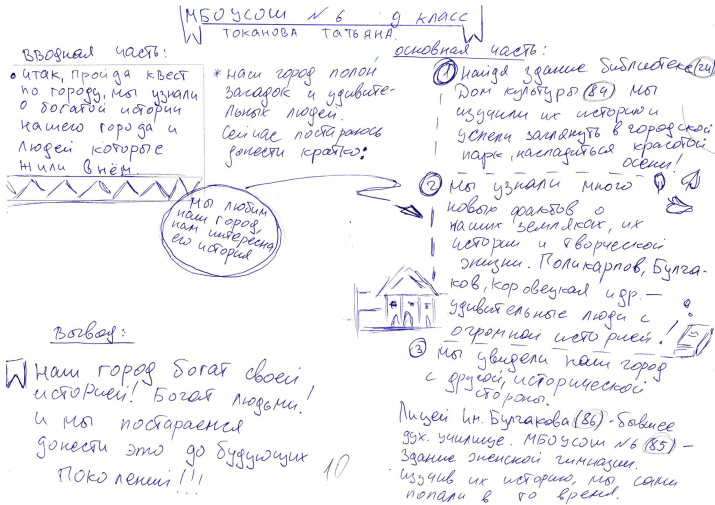 МБОУСОШ №6 9 класс
Токанова Татьяна.
Вводная часть:
• Итак, пройдя квест
по городу, мы узнали
о богатой истории
нашего города и
людей которые
жили в нём.
* Наш город полон
загадок и удивите-
льных людей.
Сейчас постараюсь
донести кратко:
Мы любим
наш город,
нам интересна
его история
Основная часть:
1 Найдя здание библиотеки (24)
Дом культуры (84) мы
изучили их историю и
успели заглянуть в городской
парк, насладиться красотой
осени!
2 Мы узнали много
новых фактов о
наших земляках, их
истории и творческой
жизни. Поликарпов, Булга-
ков, Коровецкая и др. –
удивительные люди с
огромной историей!
3 Мы увидели наш город
с другой, исторической
стороны.
Лицей им. Булгакова (86) - бывшее
дух. училище. МБОУСОШ №6 (85) –
Здание женской гимназии.
Изучив их историю, мы сами
попали в то время.
Вывод:
Наш город богат своей
историей! Богат людьми!
и мы постараемся
донести это до будующих
Поколений!!!
10